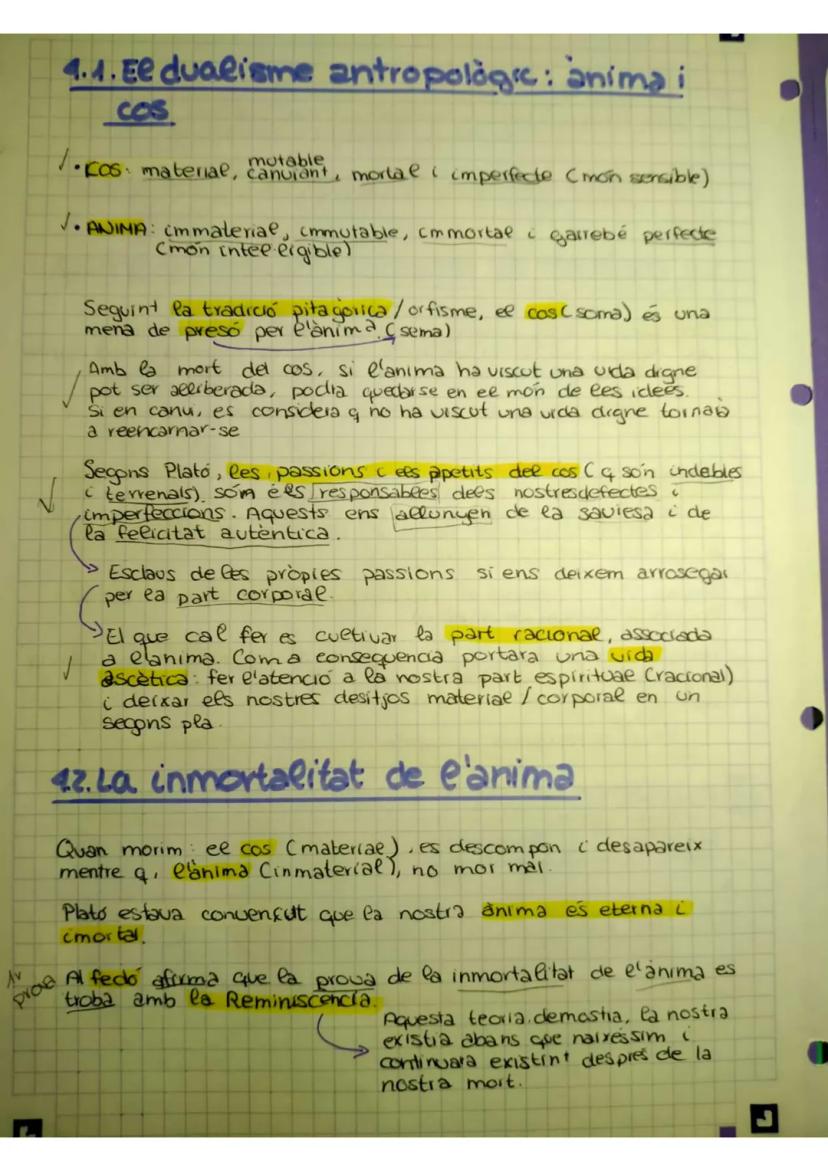 4.1. El dualisme antropològic: ànima i
cos
• COS: material, mutable canviant, mortal i imperfecte (món sensible)
• ANIMA: immaterial, immutable, immortal i gairebé perfecte
(món intel·ligible)
Seguint la tradició pitagòrica / orfisme, el cos (soma) és una
mena de presó per l'ànima (sema)
Amb la mort del cos, si l'anima ha viscut una vida digne
pot ser alliberada, podia quedarse en el món de les idees.
Si en canvi, es considera q no ha viscut una vida digne tornarà
a reencarnar-se
Segons Plató, les passions i els apetits del cos (q són
i terrenals) són els responsables dels nostres defectes i
imperfeccions. Aquests ens allunyen de la saviesa i de
la felicitat autèntica.
Esclaus de les pròpies passions si ens deixem arrosegar
per la part corporal.
El que cal fer es cultivar la part racional, associada
a l'anima. Com a consequencia portara una vida
ascètica: fer l'atenció a la nostra part espiritual (racional)
i deixar els nostres desitjos material / corporal en un
segons pla.
4.2. La inmortalitat de l'anima
Quan morim: el cos (material), es descompon i desapareix
mentre q, l'ànima (inmaterial), no mor mai.
Plató estava convençut que la nostra ànima és eterna i
imortal.
Al fedó afirma que la prova de la inmortalitat de l'ànima es
troba amb la Reminiscència.
Aquesta teoria, demostra, la nostra
existia abans que naixessim i
continuara existint despres de la
nostra mort.